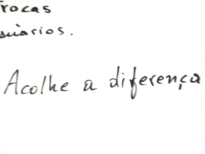 rocas
suários.
Acolhe a diferença